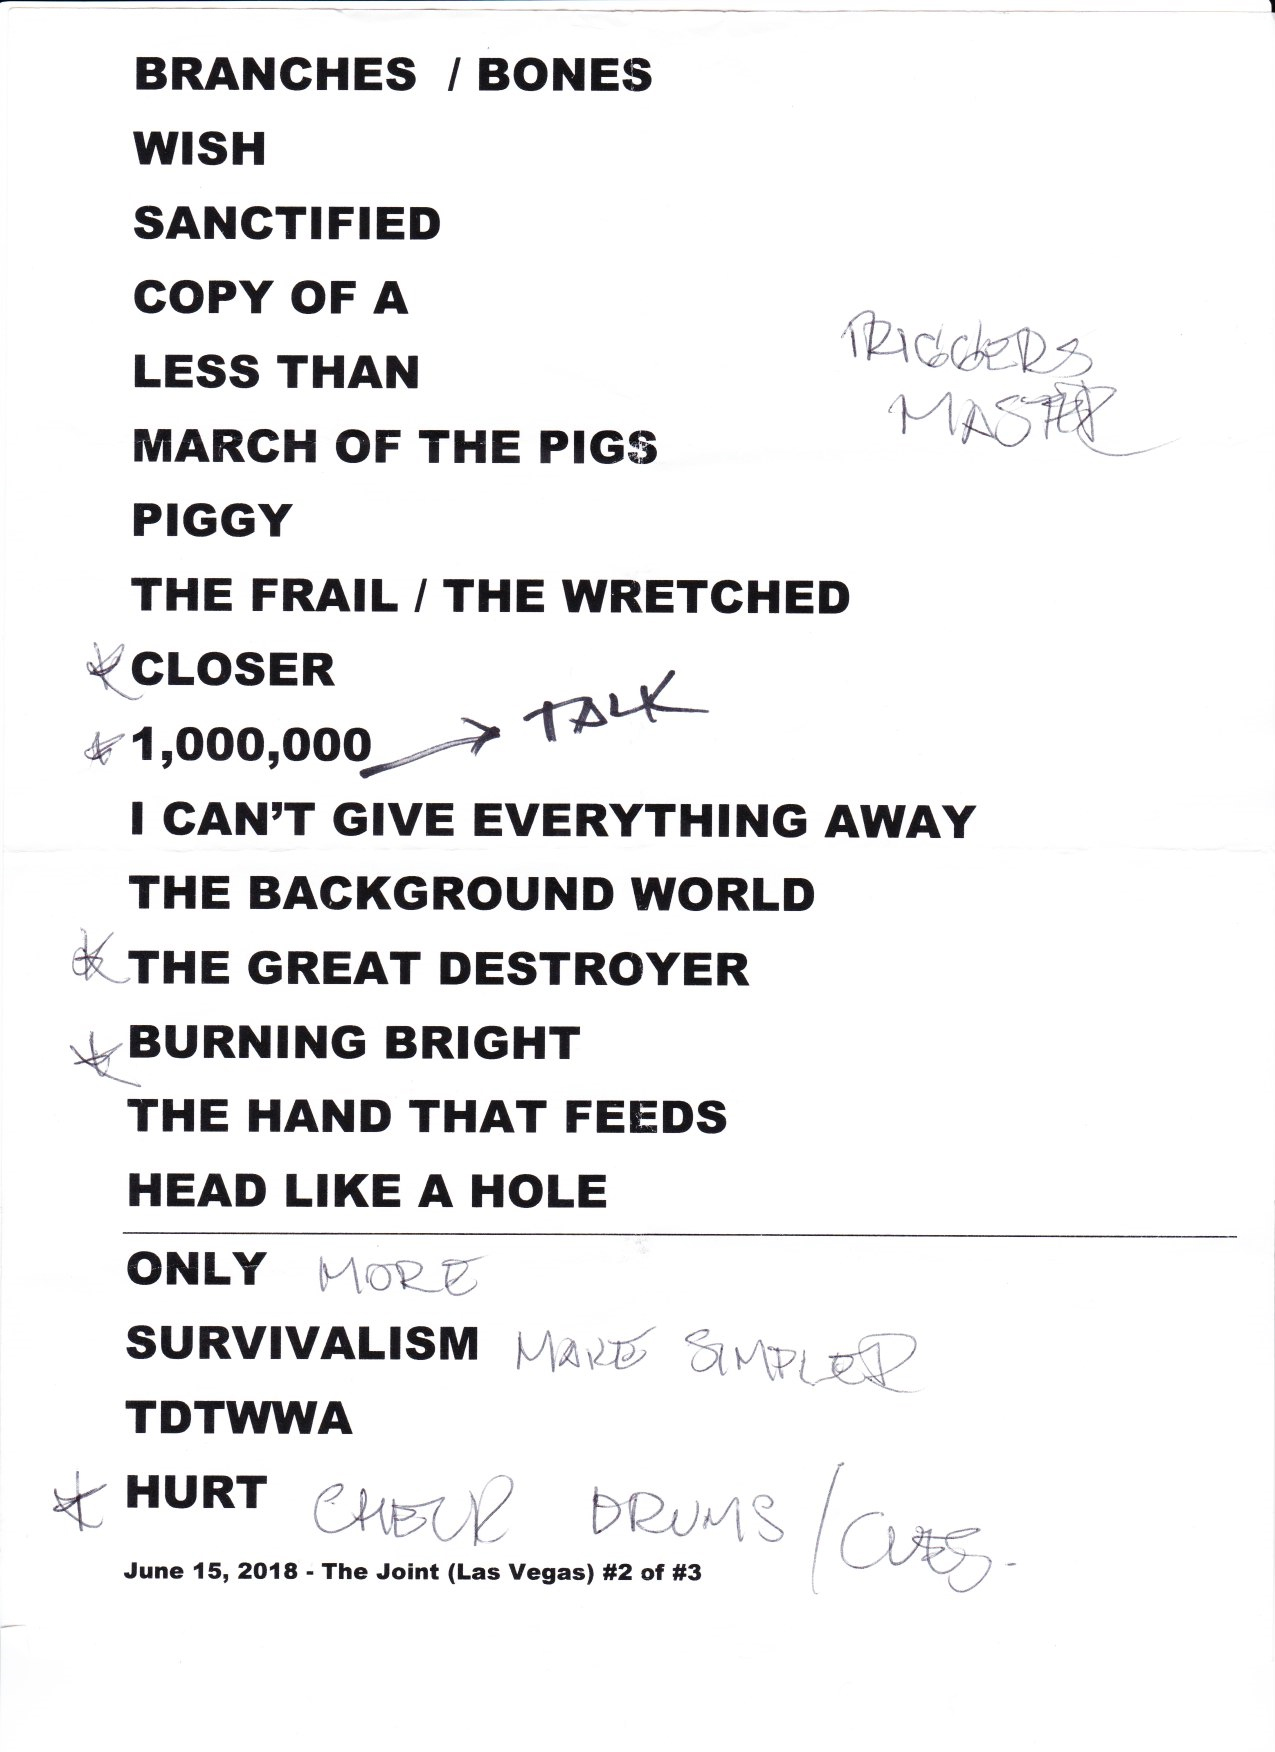 BRANCHES / BONES
WISH
SANCTIFIED
COPY OF A
TRIGGERS
LESS THAN
MASTER
MARCH OF THE PIGS
PIGGY
THE FRAIL / THE WRETCHED
CLOSER
1,000,000 → TALK
I CAN'T GIVE EVERYTHING AWAY
THE BACKGROUND WORLD
THE GREAT DESTROYER
BURNING BRIGHT
THE HAND THAT FEEDS
HEAD LIKE A HOLE
ONLY MORE
SURVIVALISM MAKE SIMPLER
TDTWWA
HURT CHECK DRUMS / CUES.
June 15, 2018 - The Joint (Las Vegas) #2 of #3